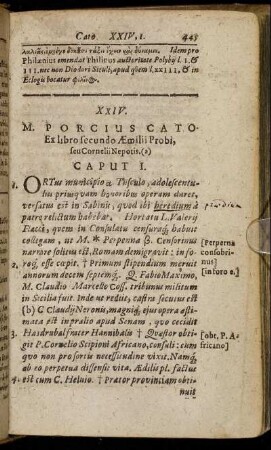 Cato XXIV, 1. 443
Idem pro
Philænius emendat Philinus auctoritate Polybij l. 1. &
III. nec non Diodori Siculi, apud quem l. XXIII. & in
Eclogis vocatur
XXIV.
M. PORCIUS CATO.
Ex libro secundo Æmilii Probi,
seu Cornelii Nepotis. (a)
CAPUT I.
1. ORTus municipio a Tusculo, adolescentu-
lus priusquam honoribus operam daret,
versatus est in Sabinis, quod ibi heredium a
patre relictum habebat. Hortatu L. Valerij
Flacci, quem in Consulatu censuraq́; habuit
collegam, ut M. * Perpenna ß. Censorinus
narrare solitus est, Romam demigravit: in fo-
roq́; esse cœpit. † Primum stipendium meruit
annorum decem septemq́. Q. Fabio Maximo,
M. Claudio Marcello Coss. tribunus militum
in Sicilia fuit. Inde ut rediit, castra secutus est
(b) C Claudij Neronis, magniq́; ejus opera æsti-
mata est in prœlio apud Senam, quo cecidit
3. Hasdrubal frater Hannibalis † Quæstor obti-
git P. Cornelio Scipioni Africano, consuli: cum
quo non pro sortis necessitudine vixit. Namq́;
ab eo perpetua dissensit vita. Ædilis pl. factus
4. est cum C. Helvio. † Prætor provinciam obti-
nuit
[Perperna
consobri-
nus]
[in foro e.]
[obt. P. A-
fricano]